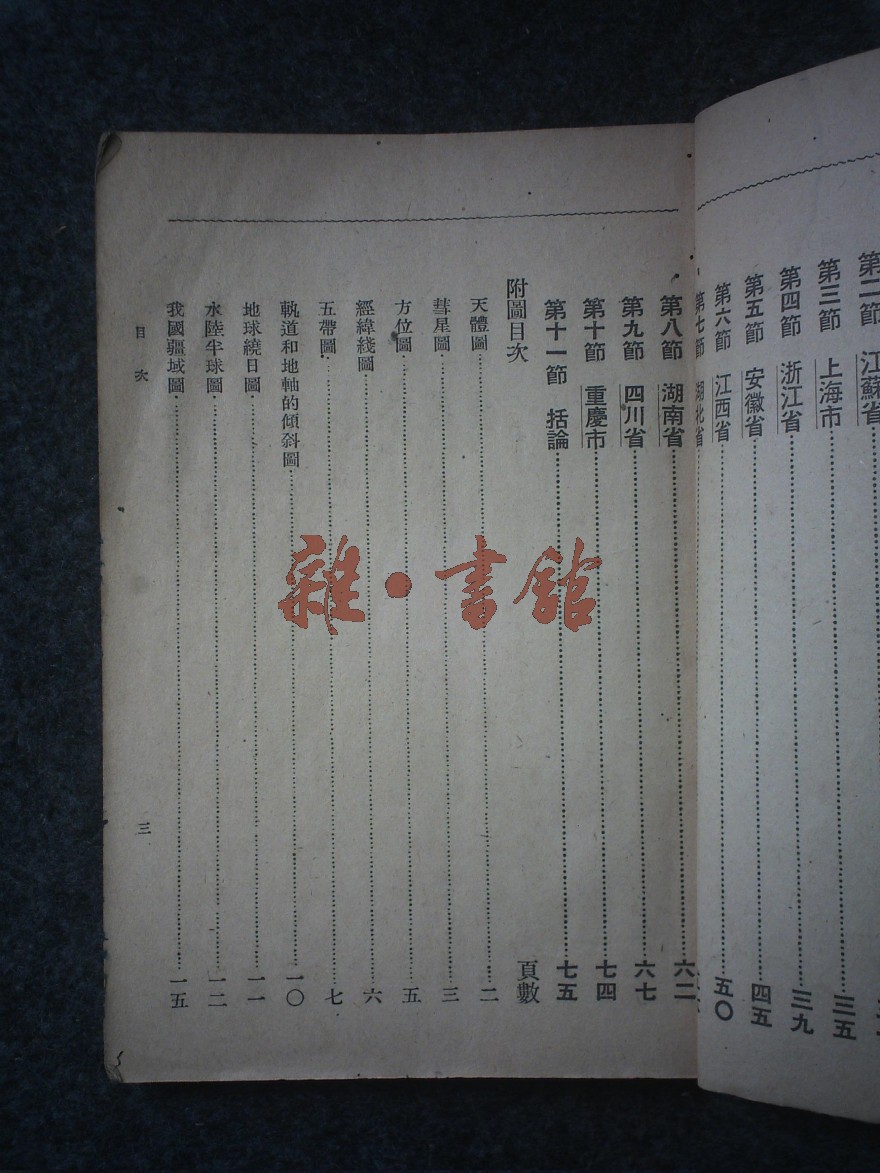 第二節 江蘇省
第三節 上海市 三五
第四節 浙江省 三九
第五節 安徽省 四五
第六節 江西省 五〇
第七節 湖北省
第八節 湖南省 六二
第九節 四川省 六七
第十節 重慶市 七四
第十一節 括論 七五
附圖目次 頁數
天體圖 二
彗星圖 三
方位圖 五
經緯綫圖 六
五帶圖 七
軌道和地軸的傾斜圖 一〇
地球繞日圖 一一
水陸半球圖 一二
我國疆域圖 一五
目次 三
雜·書館